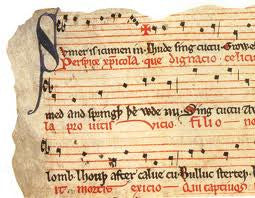 Sumer is icumen in. Lhude sing cuccu. Groweþ
Perspice xpicola. que dignacio. celicus
med and springþ þe wde nu. Sing cuccu. Aw
la pro uitis vicio. Filio non
lomb. lhouþ after calue cu. Bulluc sterteþ.
it. mortis exicio. Qui captiuos